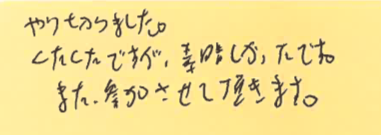 やりきりました。
くたくたですが、素晴しかったです。
また、参加させて頂きます。